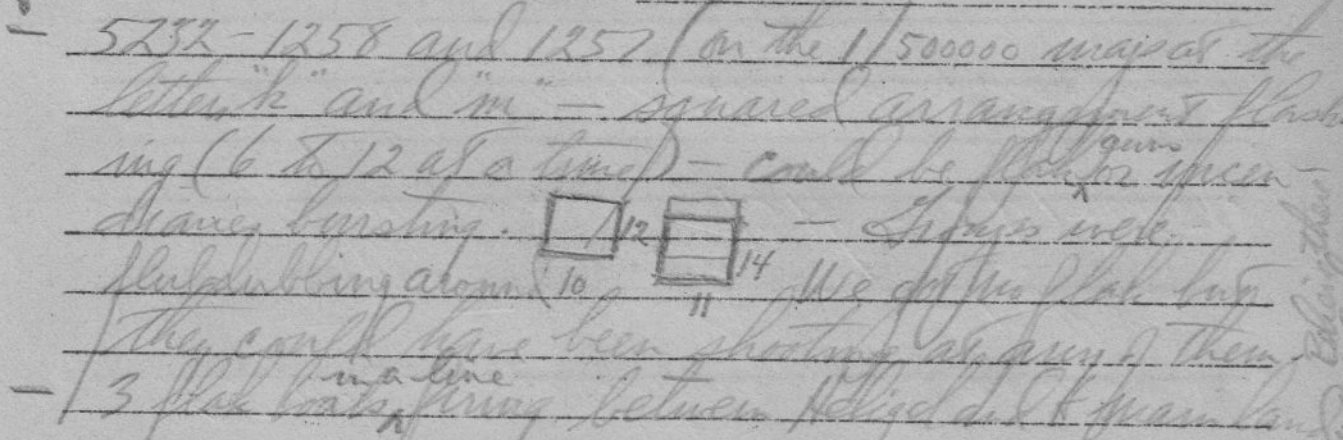 - 5232-1258 and 1257 (on the 1/500000 map at the
letter "k" and "m" — squared arrangement flash
ing (6 to 12 at a time) — could be flak guns or incen-
diaries bursting. 12 — Groups were
flubdubbing around 10 11 14 We got no flak but
they could have been shooting at them
- 3 flak boats in a line firing between Heligoland & mainland